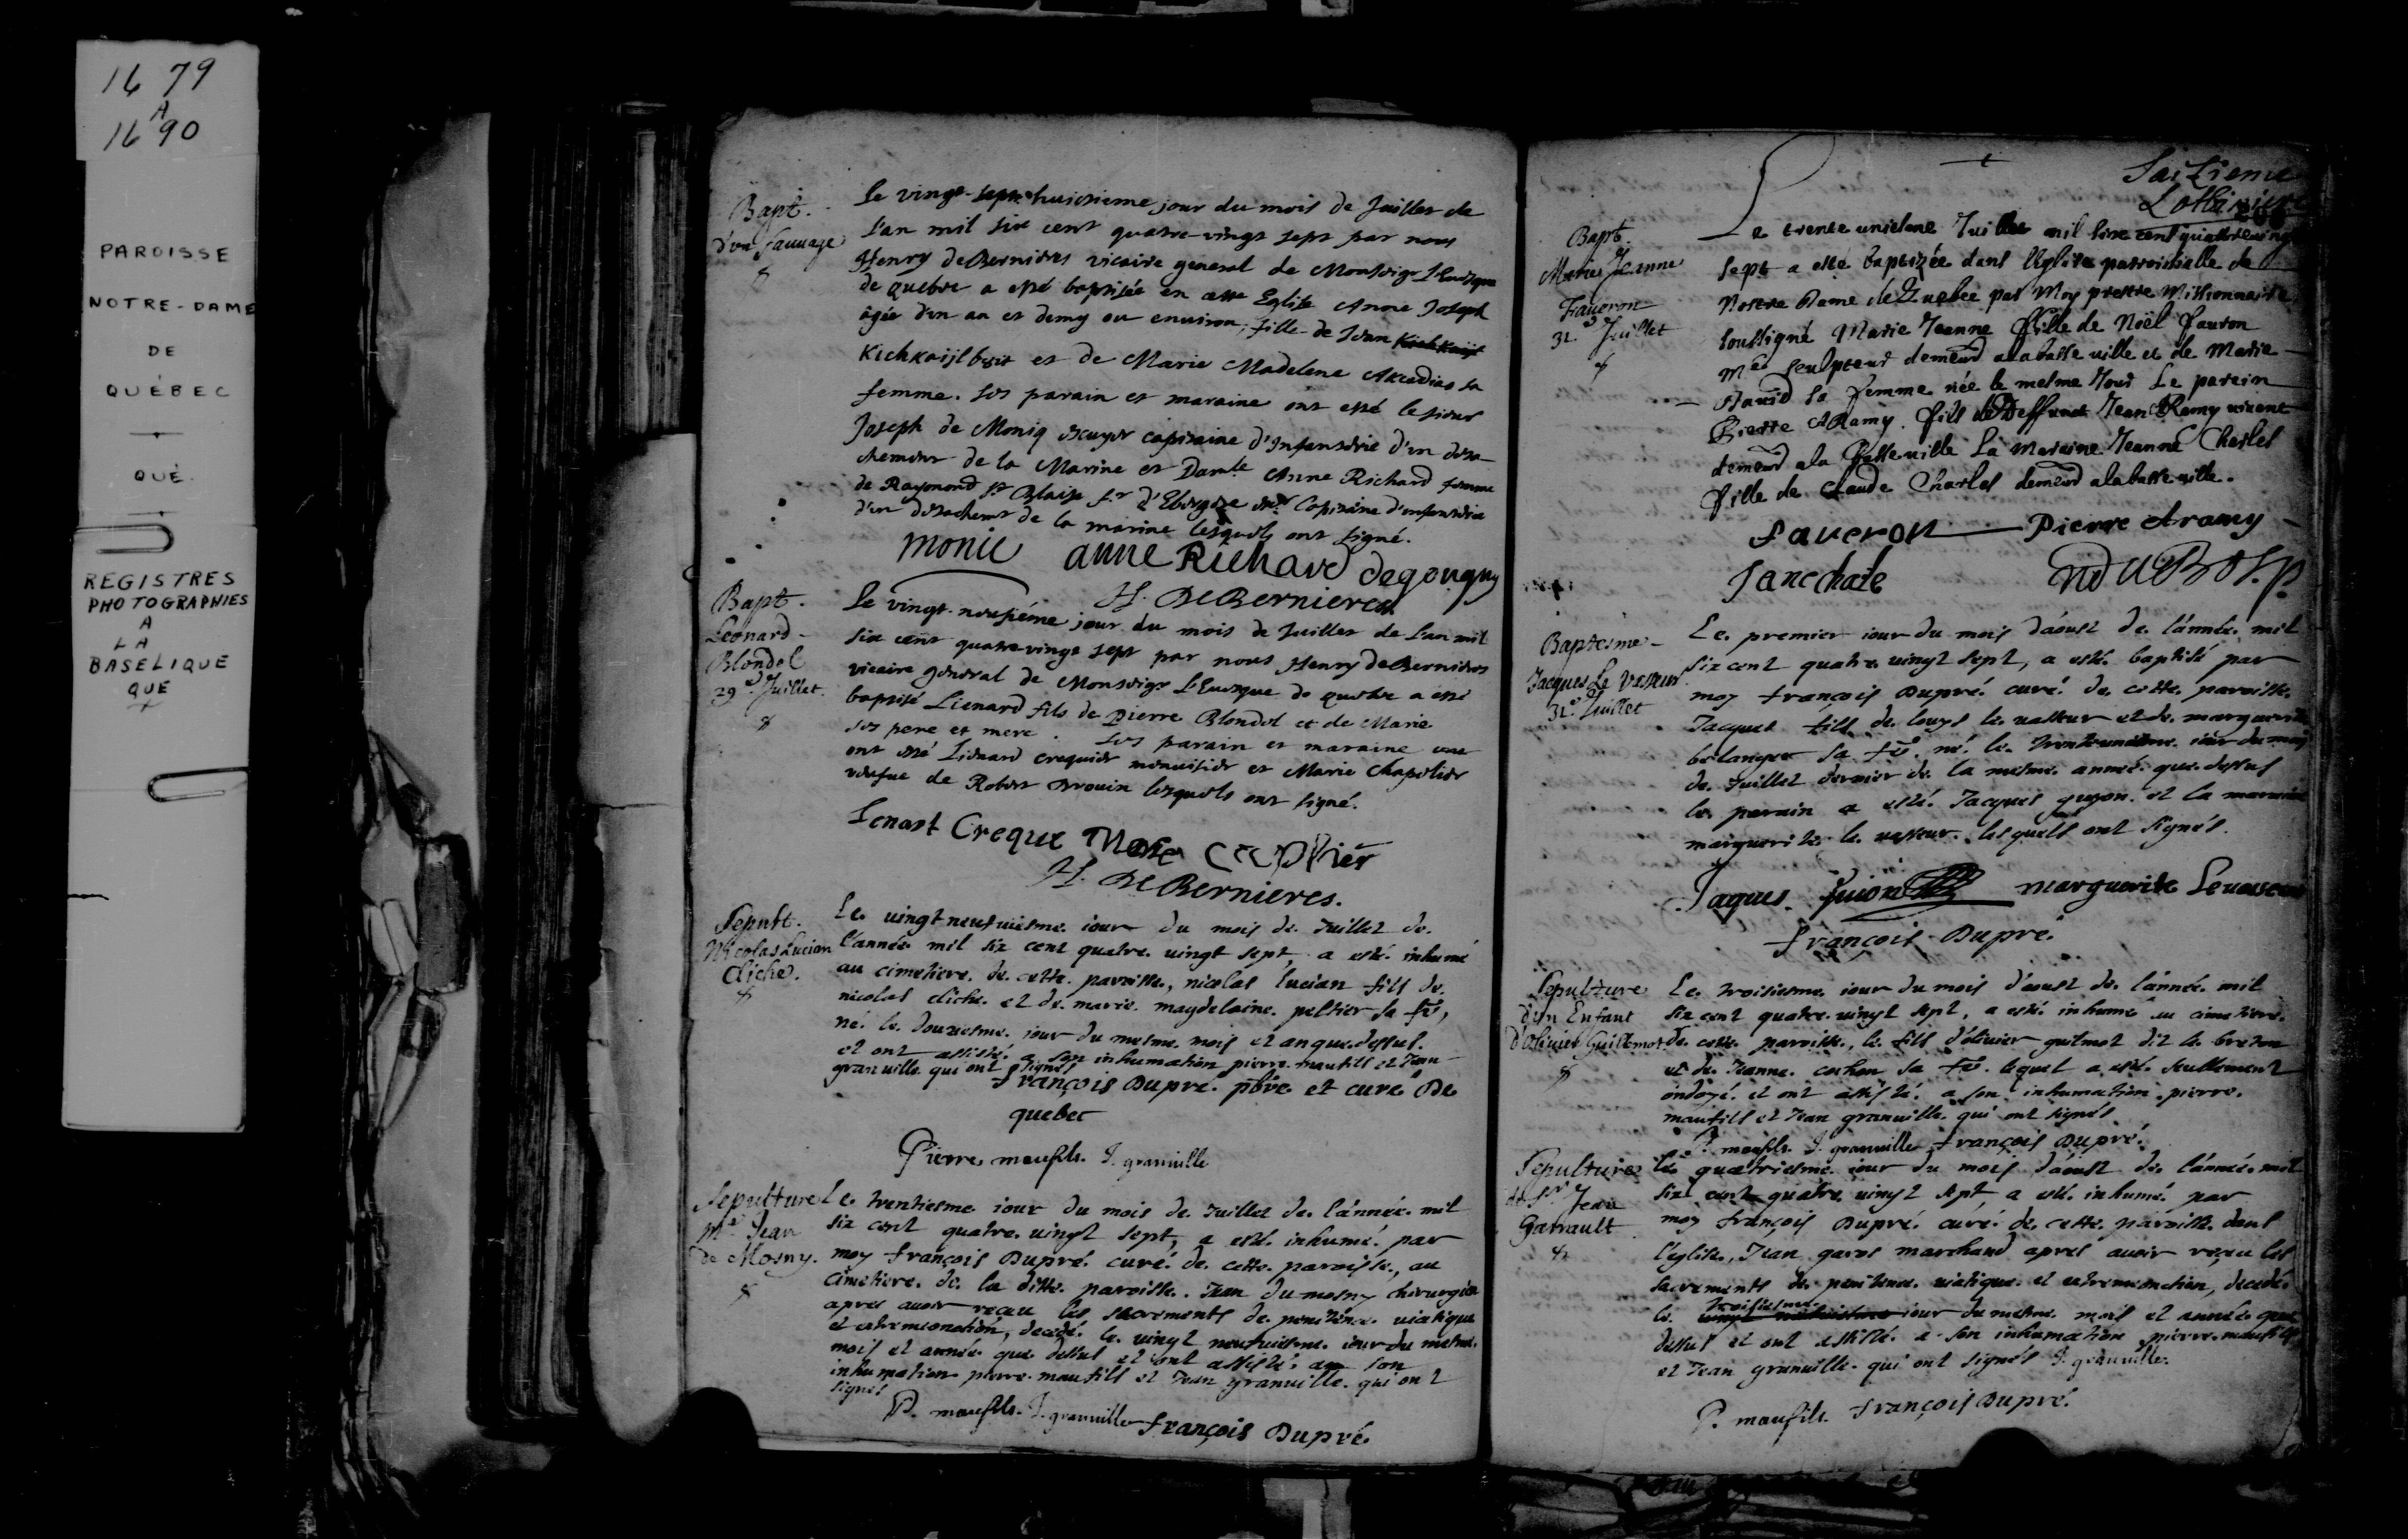 1679
A
1690
PAROISSE
NOTRE-DAME
DE
QUÉBEC
QUÉ.
REGISTRES
PHOTOGRAPHIES
A
LA
BASELIQUE
QUE
Bapt.
d'un sauvage
Le vingt-sept huictieme jour du mois de Juillet de
l'an mil six cent quatre-vingt sept par nous
Henry de Bernieres vicaire general de Monseigr l'Evesque
de Quebec a esté baptisée en cette Eglise Anne Joseph
âgée d'un an et demy ou environ, fille de Jean
et de Marie Madelene sa
femme. Ses parain et maraine ont esté le sieur
Joseph de Moniq escuyer capitaine d'Infanterie d'un deta-
chement de la Marine et Dame Anne Richard femme
de Raymond Blaise sr Capitaine d'infanterie
d'un detachemt de la marine lesquels ont signé.
monic anne Richard degougny
H. De Bernieres
Bapt.
Leonard
Blondel
29e Juillet.
Le vingt-neufiéme jour du mois de Juillet de l'an mil
six cent quatre vingt sept par nous Henry de Bernieres
vicaire general de Monseigr L'Evesque de Quebec a esté
baptisé Lienard fils de Pierre Blondel et de Marie
ses pere et mere. Ses parain et maraine
ont esté Lienard crequier menuisier et Marie Chapelier
veufue de Robert Drouin lesquels ont signé.
Lenart Creque
H. De Bernieres.
Sepult.
Nicolas Lucian
Cliche.
Le vingt neufuiesme iour du mois de Juillet de
l'année mil six cent quatre vingt sept, a esté inhumé
au cimetiere de cette paroisse, nicolas lucian fils de
nicolas cliche et de marie magdelaine peltier sa fe,
né le douziesme iour du mesme mois et an que dessus.
et ont assisté a son inhumation pierre maufils et Jean
granville qui ont signés
françois Dupré pbre et curé De
quebec
Pierre maufils. J. granville
Sepulture
Me Jean
de Mosny.
Le trentiesme iour du mois de Juillet de l'année mil
six cent quatre vingt sept, a esté inhumé par
moy françois Dupré curé de cette paroisse, au
cimetiere de la ditte paroisse. Jean du mosny chirurgien
apres avoir reçeu les sacrements de penitence viatique
et extremeonction, decedé le vingt neufuiesme iour du mesme
mois et année que dessus et ont assisté a son
inhumation pierre maufils et Jean granville qui ont
signés
P. maufils. J. granville françois Dupré.
Bapt.
Marie Jeanne
Faueron
31e Juillet
Le trente uniesme Juillet mil six cent quattre vingt
sept a esté baptizée dans l'Eglise parroichialle de
Nostre Dame de Quebec par Moy prestre Missionnaire
soussigné Marie Jeanne fille de Noël Fauron
Me sculpteur demeurt a la basse ville et de Marie
David sa femme née le mesme Jour Le parein
Pierre ARamy fils de Deffunct Jean ARamy vivant
demeurt a la Basse ville La Mareine Jeanne Charles
fille de Claude Charles demeurt a la basse ville.
Faveron Pierre Aramy
Baptesme
Jacques Le Vasseur
31e Juillet
Le premier iour du mois d'aoust de l'année mil
six cent quatre vingt sept, a esté baptisé par
moy françois Dupré curé de cette paroisse
Jacques fils de louys le vasseur et de marguerite
belanger sa fe né le trenteuniesme iour du mois
de Juillet dernier de la mesme année que dessus
le parain a esté Jacques guyon et la maraine
marguerite le vasseur lesquels ont signés.
Jaques Guion marguerite Levasseur
françois Dupré.
Sepulture
d'un Enfant
d'Olivier Guillemot
Le troisiesme iour du mois d'aoust de l'année mil
six cent quatre vingt sept, a esté inhumé au cimetiere
de cette paroisse, le fils d'olivier guilmot dit le breton
et de Jeanne cochon sa fe lequel a esté seullement
ondoyé et ont assisté a son inhumation pierre
maufils et Jean granville qui ont signés
P. maufils. J. granville françois Dupré.
Sepulture
de Sr Jean
Garrault
Le quatriesme iour du mois d'aoust de l'année mil
six cent quatre vingt sept a esté inhumé par
moy françois Dupré curé de cette paroisse dans
l'eglise, Jean garos marchand apres avoir reçeu les
sacrements de penitence viatique et extremeonction, decedé
troisiesme
le iour du mesme mois et année que
dessus et ont assisté a son inhumation pierre maufils
et Jean granville qui ont signés J. granville.
P. maufils. françois Dupré.